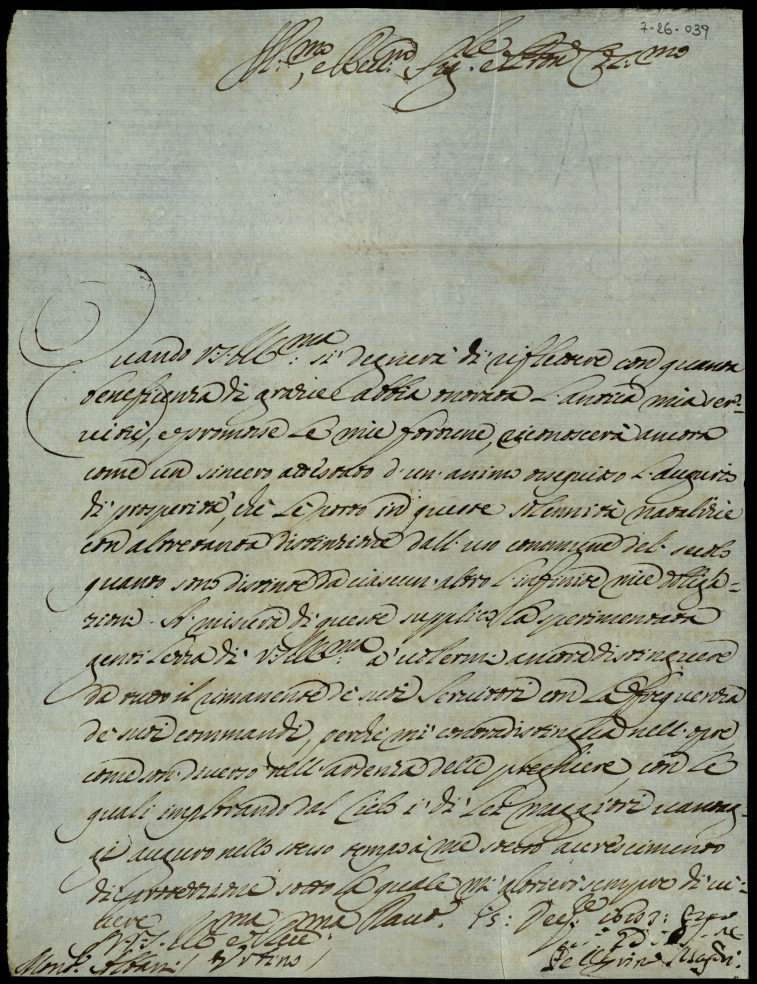 7-26-039
Ill.mo, e Rev.mo Sig.re
Quando VS. Ill.ma si degnerà di riflettere con quanta
beneficenza di grazie habbia onorata l'antica mia ser-
vitù, e promosse le mie fortune, riconoscerà ancora
come un sincero attestato d'un animo ossequioso l'augurio
di prosperità, che le porto in queste solennità natalizie
con altretanta distinzione dall'uso commune del secolo
quanto sono distinte da ciascun altro l'infinite mie obliga-
zioni. A misura di queste supplico la sperimentata
gentilezza di VS. Ill.ma a volermi ancora distinguere
da tutto il rimanente de suoi servitori con la frequenza
de suoi commandi, perche mi contradistingua nell'opre
come son diverso nell'ardenza delle preghiere, con le
quali implorando dal Cielo i di Lei maggiori vantag-
gi auguro nello stesso tempo à me stesso accrescimento
di protezzione sotto la quale mi glorierò sempre di vi-
vere
Di VS. Ill.ma e Rev.ma 15: Dec.re
Mons.r Albani / Urbino /
Pellegrino